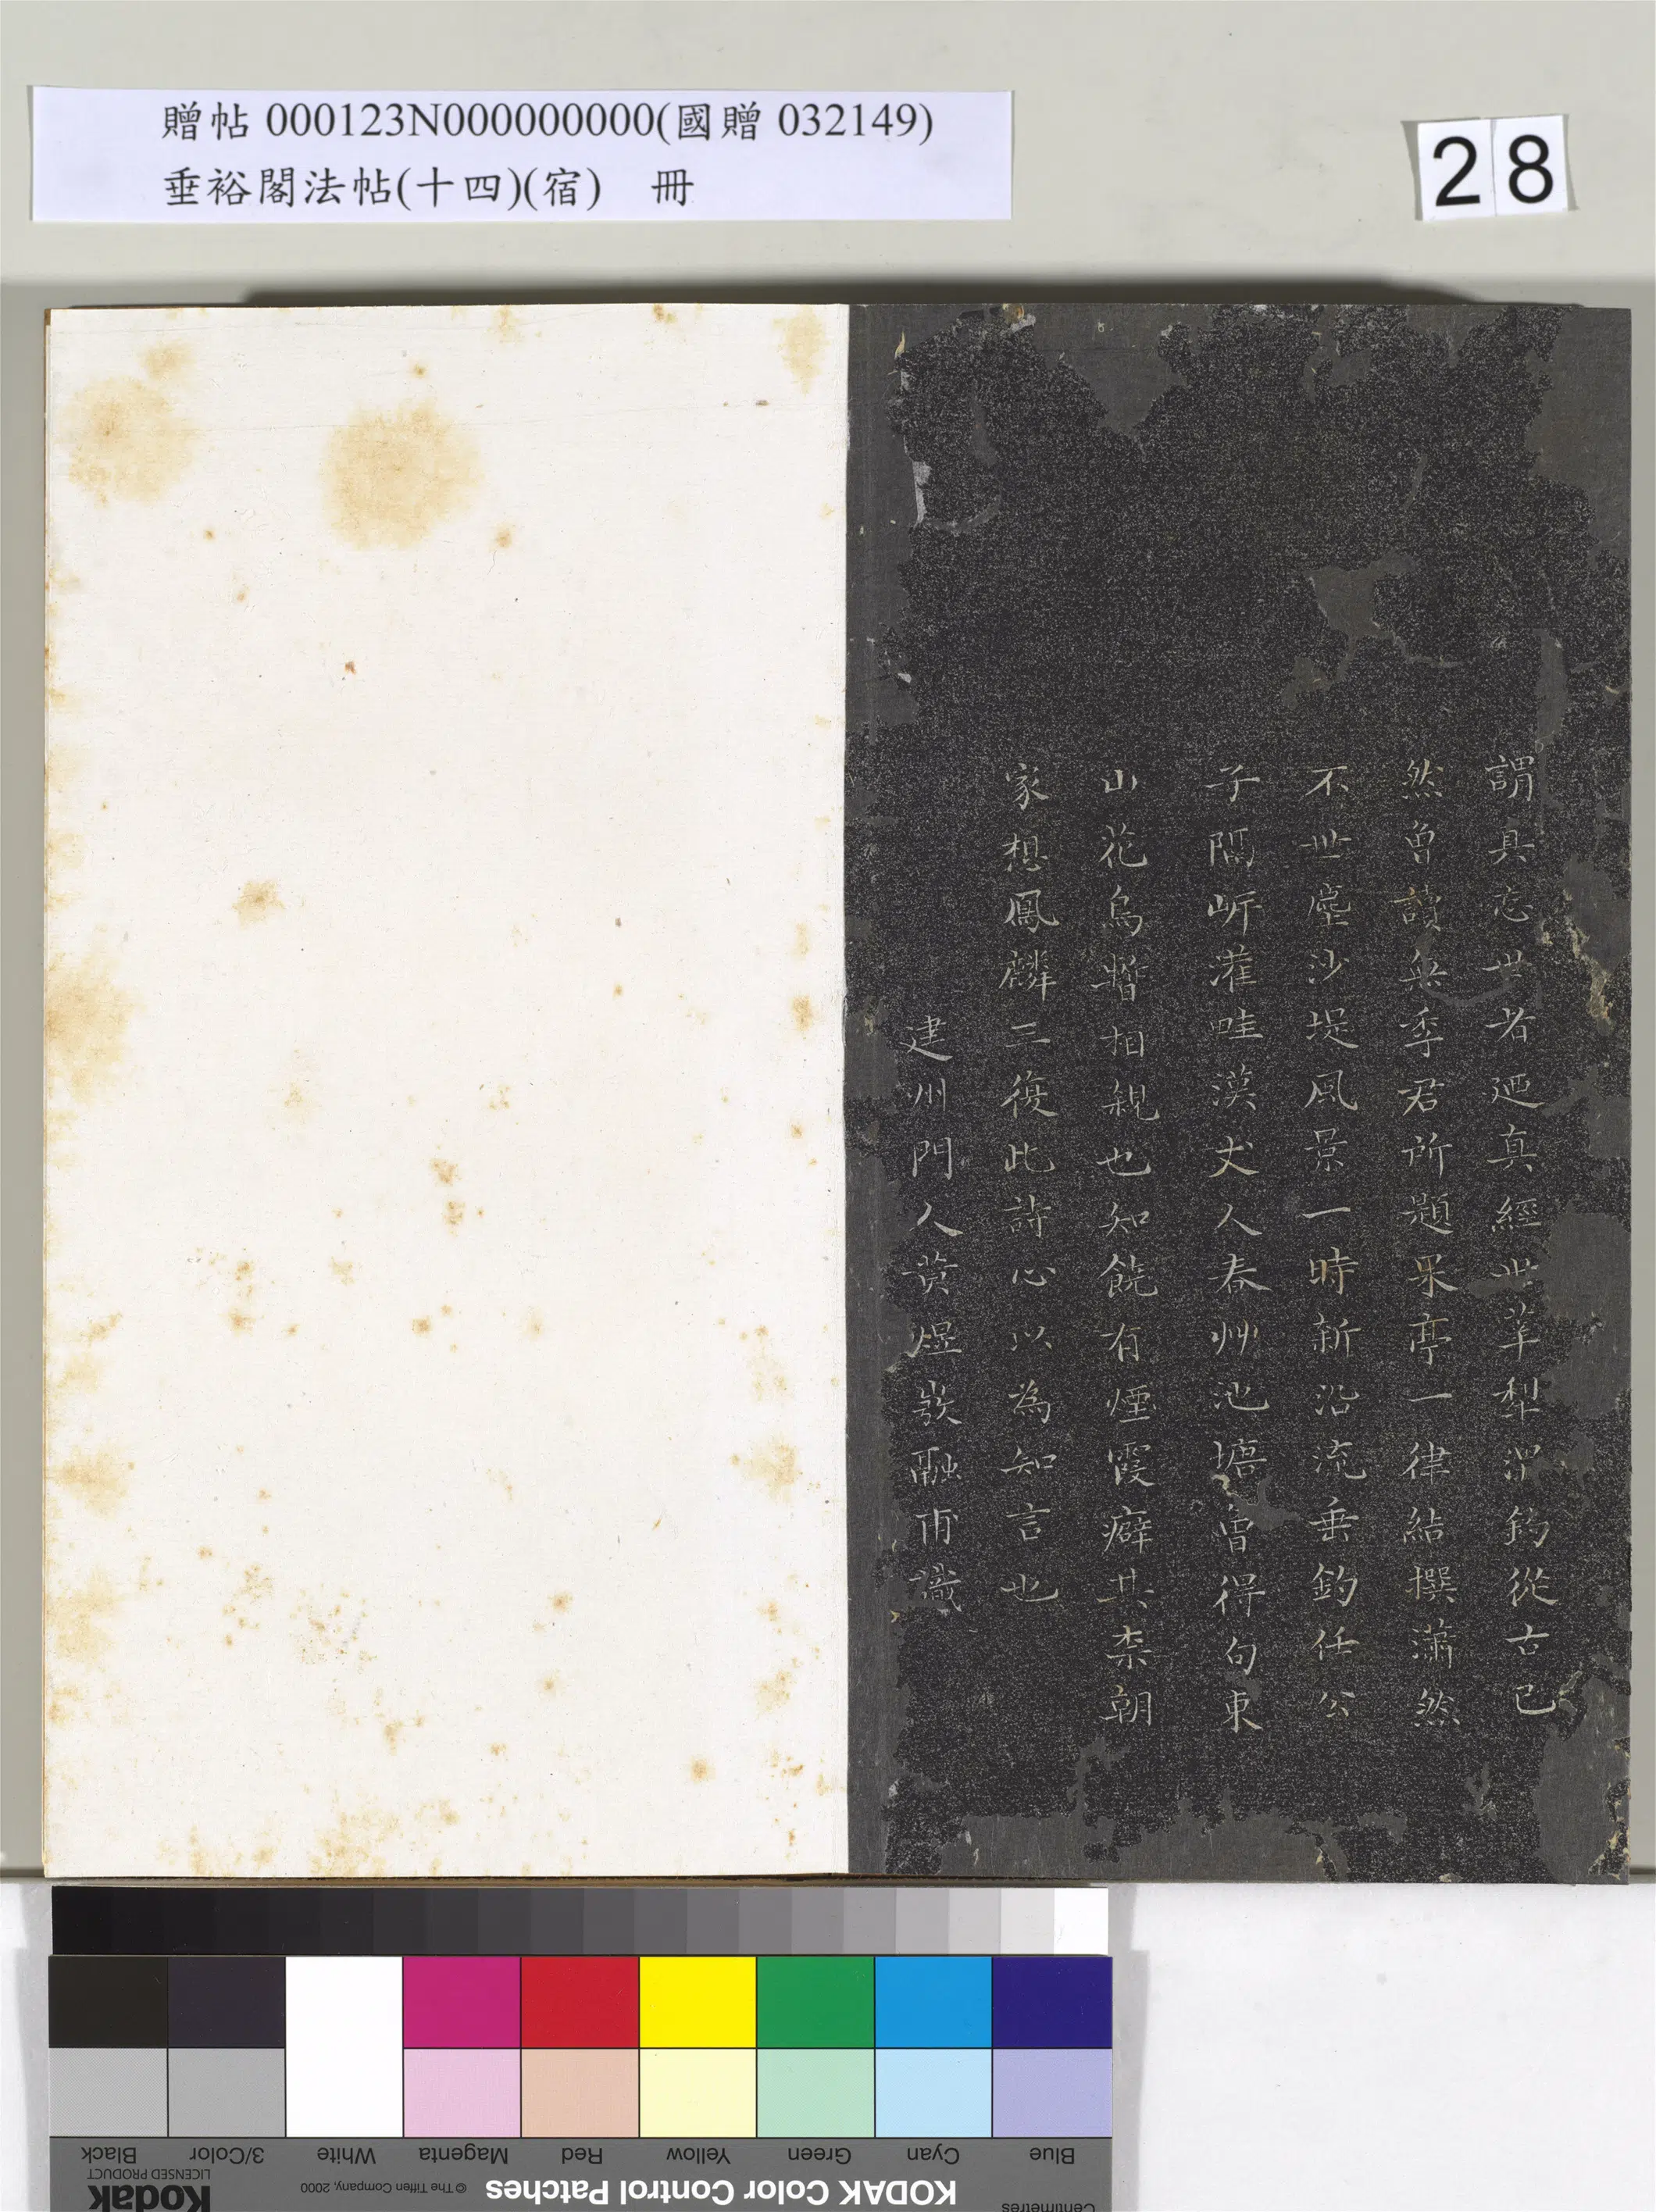 贈帖 000123N000000000(國贈 032149)
垂裕閣法帖(十四)(宿) 冊
28
謂具忘世者廼真經世莘犁渭釣從古已
然曾讀無季君所題果亭一律結撰瀟然
不世塵沙堤風景一時新沿流垂釣任公
子隔岓灌畦漢丈人春艸池塘曾得句東
山花鳥暫相親也知饒有煙霞癖其柰朝
家想鳳麟三復此詩心以為知言也
建州門人黃煜融甫識
Black
3/Color
White
Magenta
Red
Yellow
Green
Cyan
Blue
Kodak
LICENSED PRODUCT
© The Tiffen Company, 2000
KODAK Color Control Patches
Centimetres